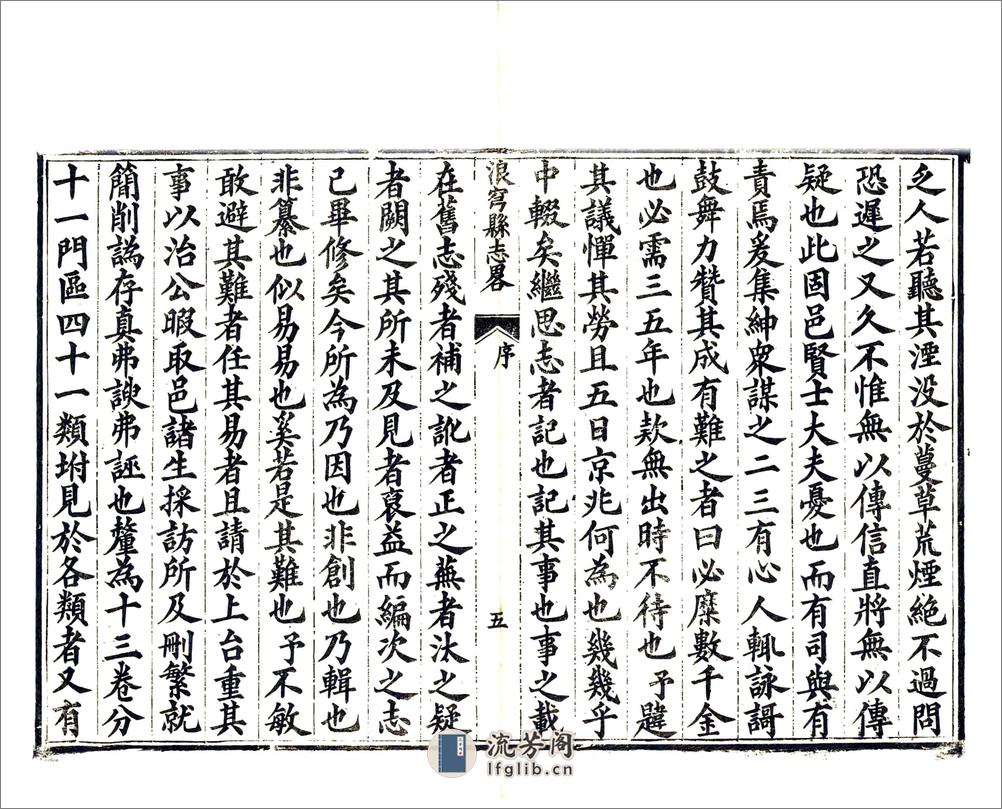 乏人若聽其湮没於蔓草荒煙絶不過問
恐遲之又久不惟無以傳信直將無以傳
疑也此固邑賢士大夫憂也而有司與有
責焉爰集紳衆謀之二三有心人輒詠謌
鼓舞力贊其成有難之者曰必糜數千金
也必需三五年也欵無出時不待也予韙
其議憚其勞且五日京兆何為也幾幾乎
中輟矣繼思志者記也記其事也事之載
浪穹縣志畧
序
五
在舊志殘者補之訛者正之蕪者汰之疑
者闕之其所未及見者裒益而編次之志
已畢修矣今所為乃因也非創也乃輯也
非纂也似易易也奚若是其難也予不敏
敢避其難者任其易者且請於上台重其
事以治公暇取邑諸生採訪所及刪繁就
簡削譌存真弗諛弗誣也釐為十三卷分
十一門區四十一類坿見於各類者又有
流芳阁
lfglib.cn